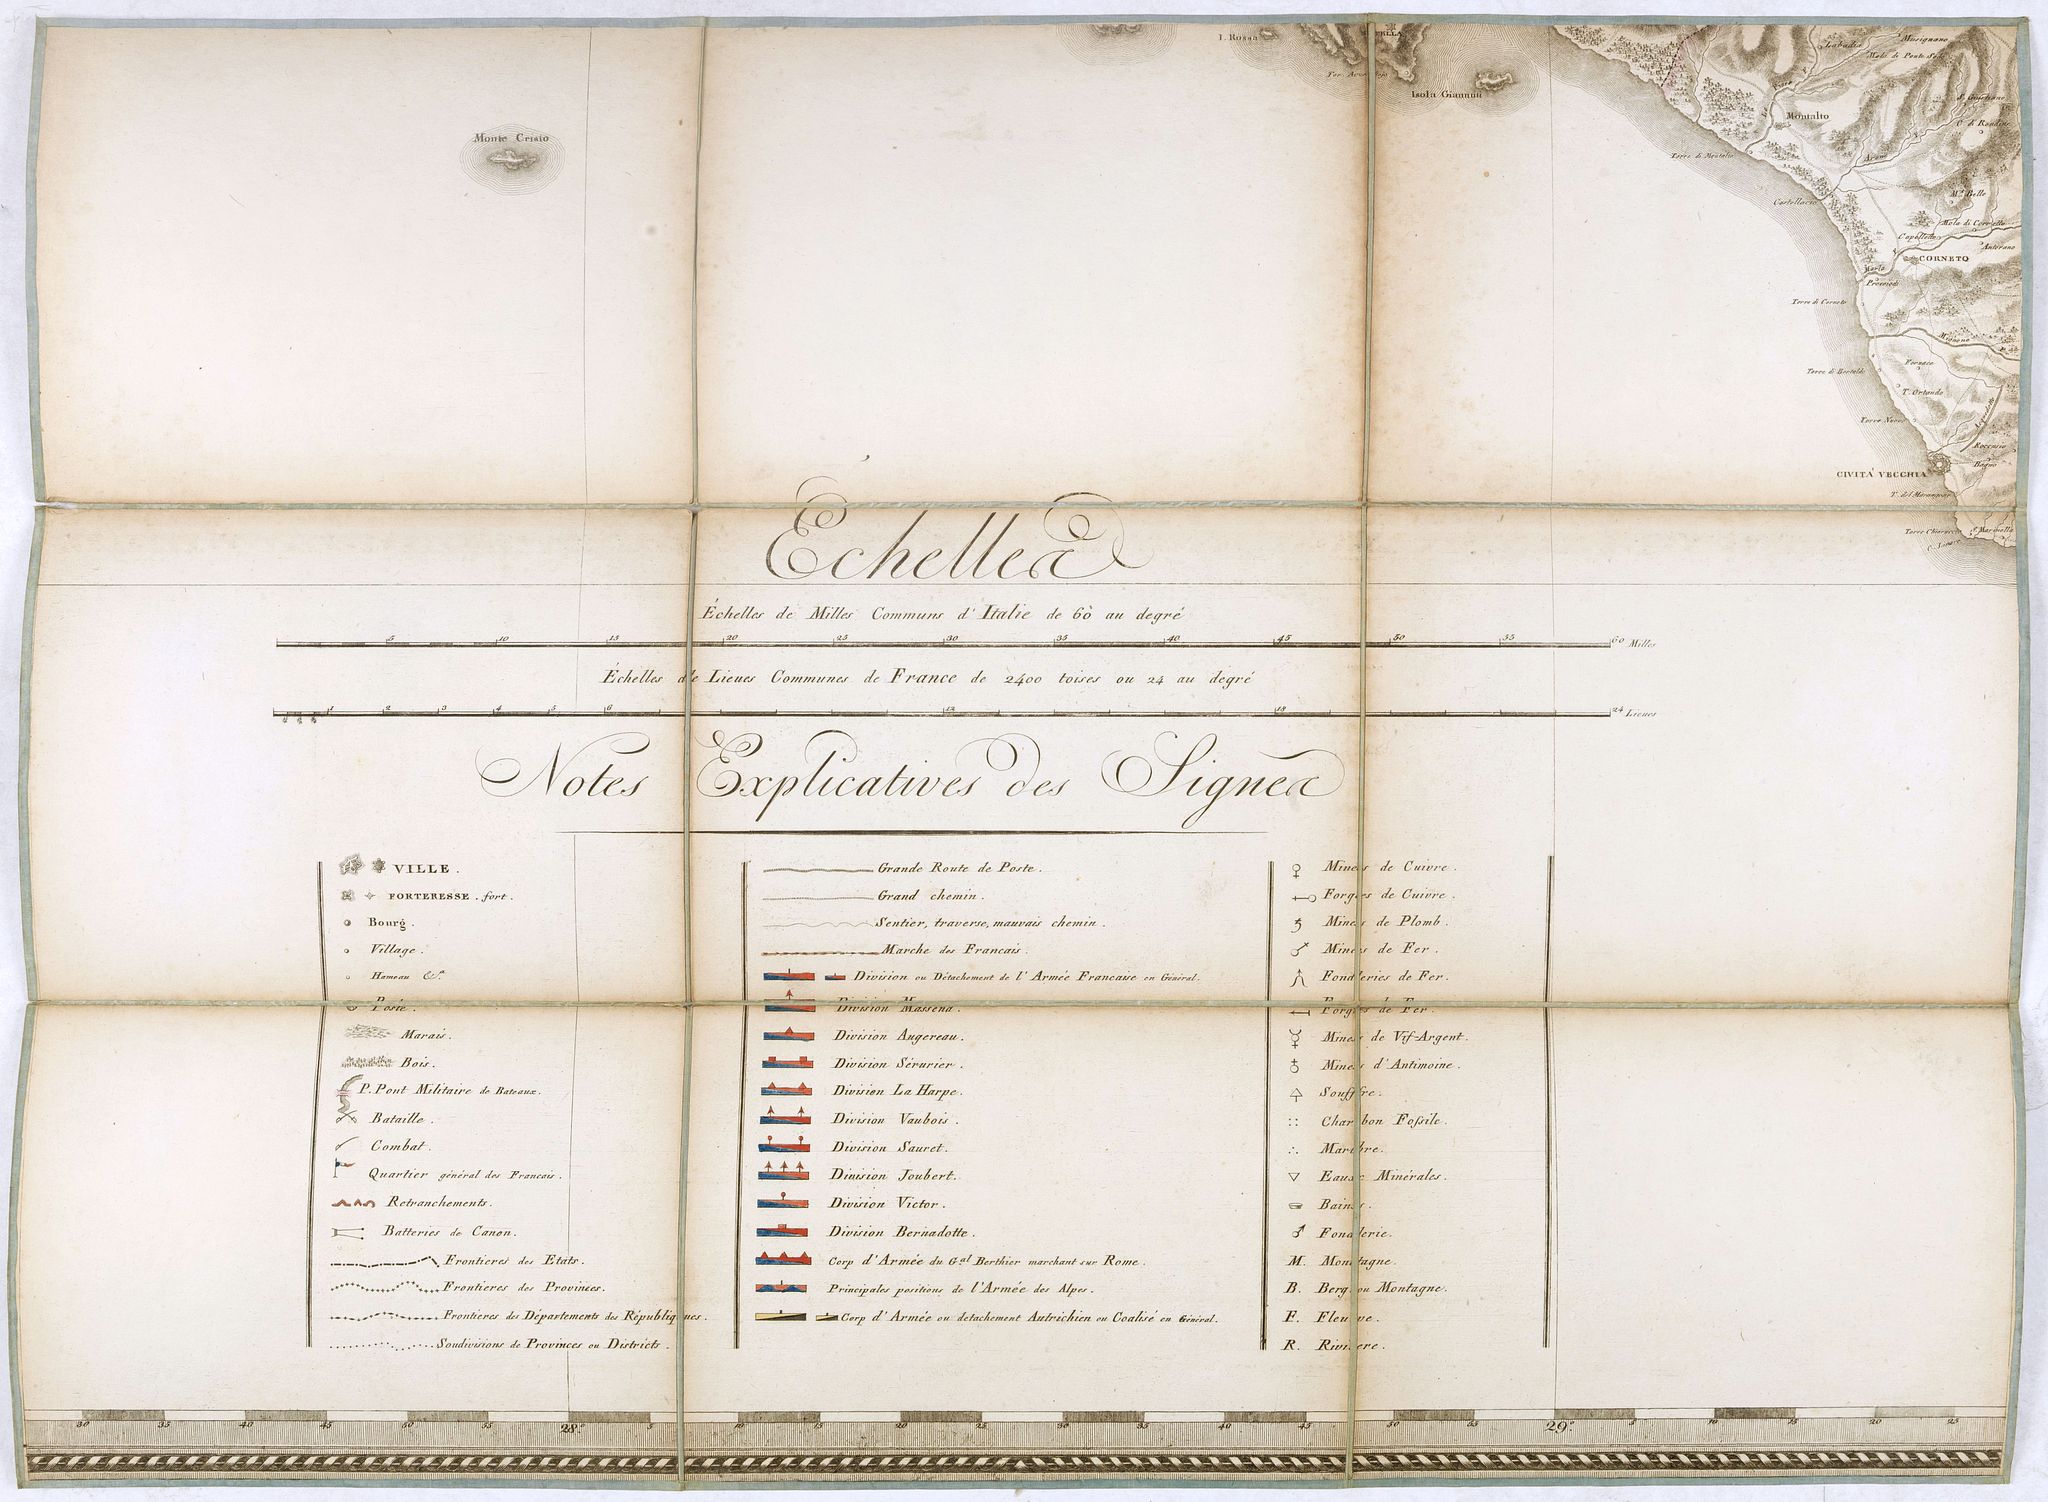 I. Rossa
Isola Giannuti
Monte Cristo
Musignano
Montalto
Torre di Montalto
Arone
Castellacio
Mt. Bello
Mola di Corneto
Capelletto
Anterano
CORNETO
Marta
Torre di Corneto
Mignone
Fornace
Torre di Bertaldo
T. Orlando
Torre Nuova
Bagno
CIVITA VECCHIA
T. del Marangone
Echelles
Échelles de Milles Communs d'Italie de 60 au degré
5 10 15 20 25 30 35 40 45 50 55 60 Milles
Échelles de Lieues Communes de France de 2400 toises ou 24 au degré
1 2 3 4 5 6 12 18 24 Lieues
Notes Explicatives des Signes
VILLE.
FORTERESSE. fort.
Bourg.
Village.
Hameau &a.
Poste.
Marais.
Bois.
P. Pont Militaire de Bateaux.
Bataille.
Combat.
Quartier général des Francais.
Retranchements.
Batteries de Canon.
Frontieres des Etats.
Frontieres des Provinces.
Frontieres des Départements des Républiques.
Soudivisions de Provinces ou Districts.
Grande Route de Poste.
Grand chemin.
Sentier, traverse, mauvais chemin.
Marche des Francais.
Division ou Détachement de l'Armée Francaise en Général.
Division Massena.
Division Augereau.
Division Sérurier.
Division La Harpe.
Division Vaubois.
Division Sauret.
Division Joubert.
Division Victor.
Division Bernadotte.
Corp d'Armée du Gal Berthier marchant sur Rome.
Principales positions de l'Armée des Alpes.
Corp d'Armée ou detachement Autrichien ou Coalisé en Général.
Mines de Cuivre.
Forges de Cuivre.
Mines de Plomb.
Mines de Fer.
Fonderies de Fer.
Forges de Fer.
Mines de Vif-Argent.
Mines d'Antimoine.
Souffre.
Charbon Fossile.
Marbre.
Eaux Minérales.
Bains.
Fonderie.
M. Montagne.
B. Berg ou Montagne.
F. Fleuve.
R. Riviere.
30 35 40 45 50 55 28° 5 10 15 20 25 30 35 40 45 50 55 29° 5 10 15 20 25